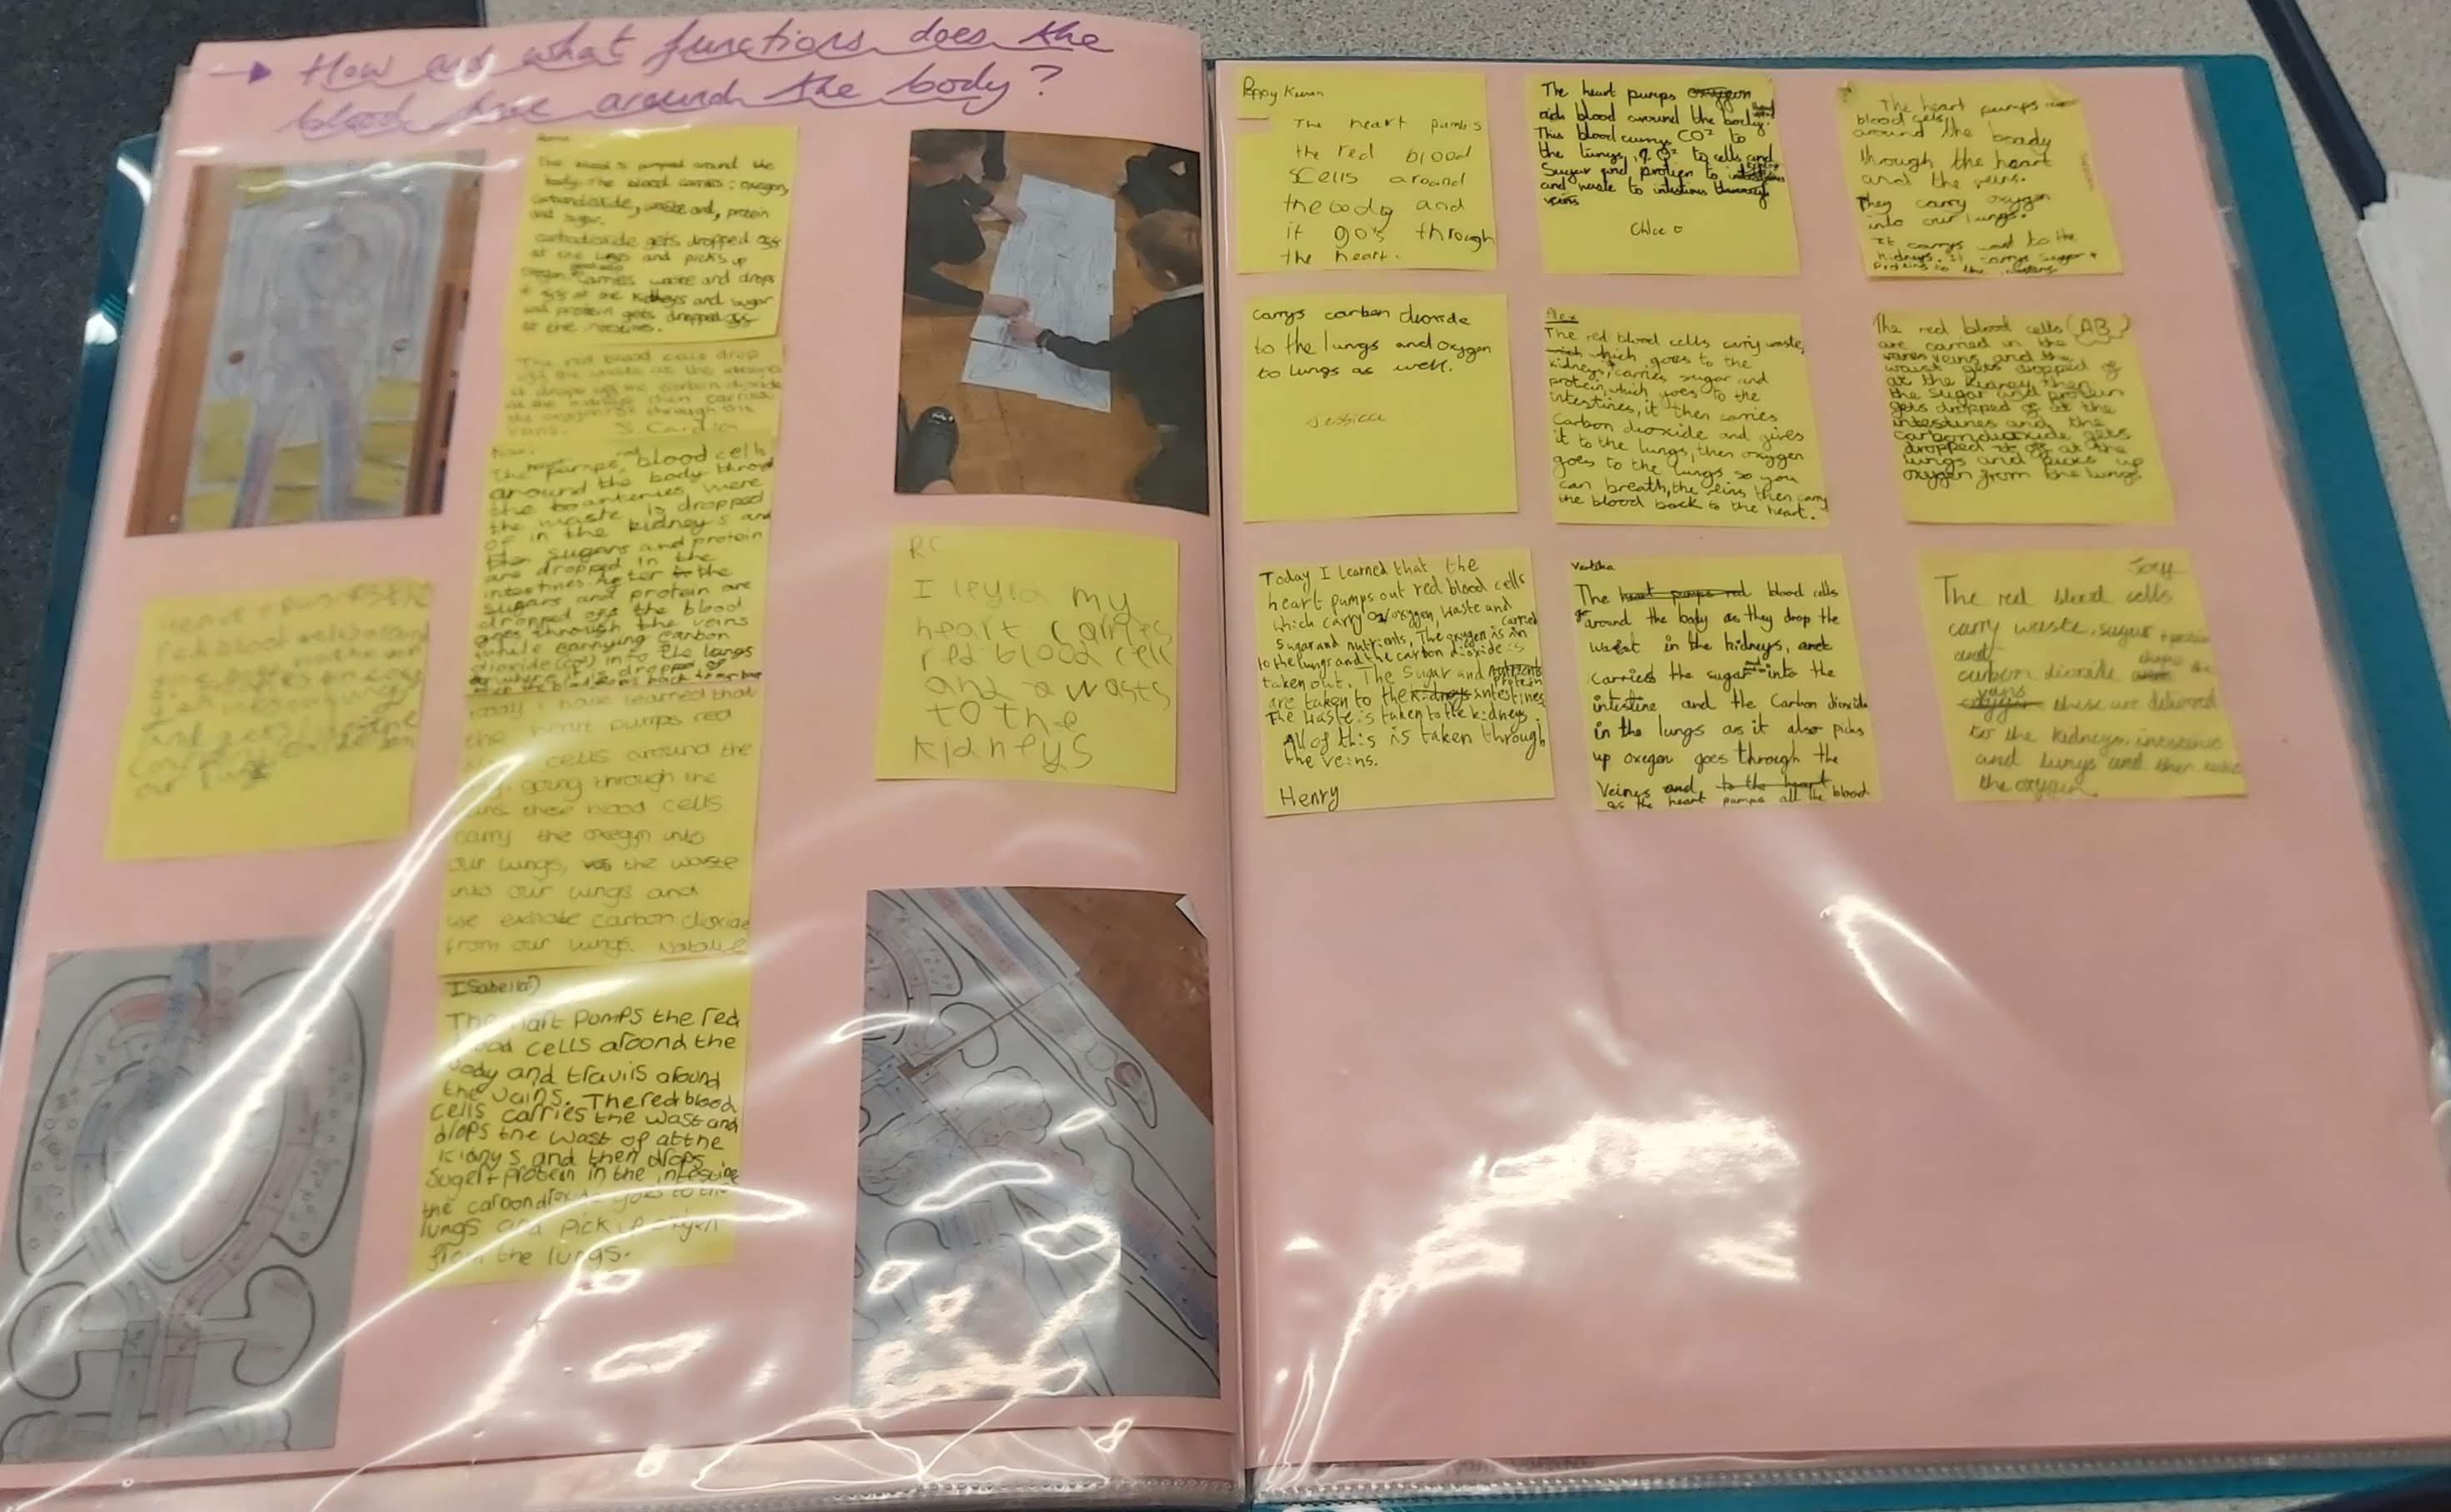 How and what functions does the
blood have around the body?
The blood is pumped around the
body. The blood carries: oxegen,
carbondioxide, waste and, protein
and sugar.
carbodioxide gets dropped off
at the lungs and picks up
carries waste and drops
it off at the kidneys and sugar
and protein gets dropped off
at the
The red blood cells drop
off the waste at the
it drops off the carbon dioxide
at the kidneys then carries
the through the
S. Cardia
The heart pumps red blood cells
around the body throu
the were
the waste is dropped
of in the kidneys and
sugars and protein
are dropped in the
intestines. After the
sugars and protein are
dropped off the blood
goes through the veins
while carrying carbon
dioxide (co2) into the lungs
where it is dropped of
Today I have learned that
the heart pumps red
cells around the
going through the
these blood cells
carry the oxegyn into
our lungs, the waste
into our lungs and
we exhale carbon dioxide
from our lungs. Natalie
Isabella
The hart pomps the red
blood cells around the
body and travils around
the vains. The red blood
cells carries the wast and
drops the wast of at the
kidnys and then drops
suger + protein in the intestine
the carbondioxide goes to the
lungs and pick
from the lungs.
red blood
our lungs
RC
I
my
heart carries
red blood cell
and a waste
to the
kidneys
Poppy
The heart pumbs
the red blood
scells around
the body and
it go's through
the heart.
The heart pumps oxygen
rich blood around the body.
This blood carrys CO² to
the lungs, O² to cells and
Sugar and protien to
and waste to intestines through
veins
Chloe
The heart pumps
blood cells
around the boady
through the heart
and the veins.
They carry oxygen
into our lungs.
It carrys wast to the
kidneys. It carrys sugar +
proteins to the
carrys carbon dioxide
to the lungs and oxygen
to lungs as well.
Jessica
Alex
The red blood cells carry waste,
which which goes to the
kidneys, carries sugar and
protein, which goes to the
intestines, it then carries
Carbon dioxide and gives
it to the lungs, then oxygen
goes to the lungs so you
can breath, the veins then carry
the blood back to the heart.
The red blood cells (AB)
are carried in the
veins and the
waist gets dropped of
at the kidney then
the sugar and protein
gets dropped of at the
intestines and the
carbondioxide gets
dropped of at the
lungs and picks up
oxygen from the lungs
Today I learned that the
heart pumps out red blood cells
which carry oxygen, waste and
sugar and nutrients. The oxygen is carried in
to the lungs and the carbon dioxide is
taken out. The sugar and nutrients protein
are taken to the kidneys intestines
The waste is taken to the kidneys.
All of this is taken through
the veins.
Henry
The heart pumps red blood cells
go around the body as they drop the
wast in the kidneys, and
carries the sugar into the
intestine and the Carbon dioxide
in the lungs as it also picks
up oxegen goes through the
Veines and, to the heart
as the heart pumps all the blood
Joey
The red blood cells
carry waste, sugar + protein
and
carbon dioxide
veins
oxygen these are delivered
to the kidneys, intestines
and lungs and then
the oxygen.